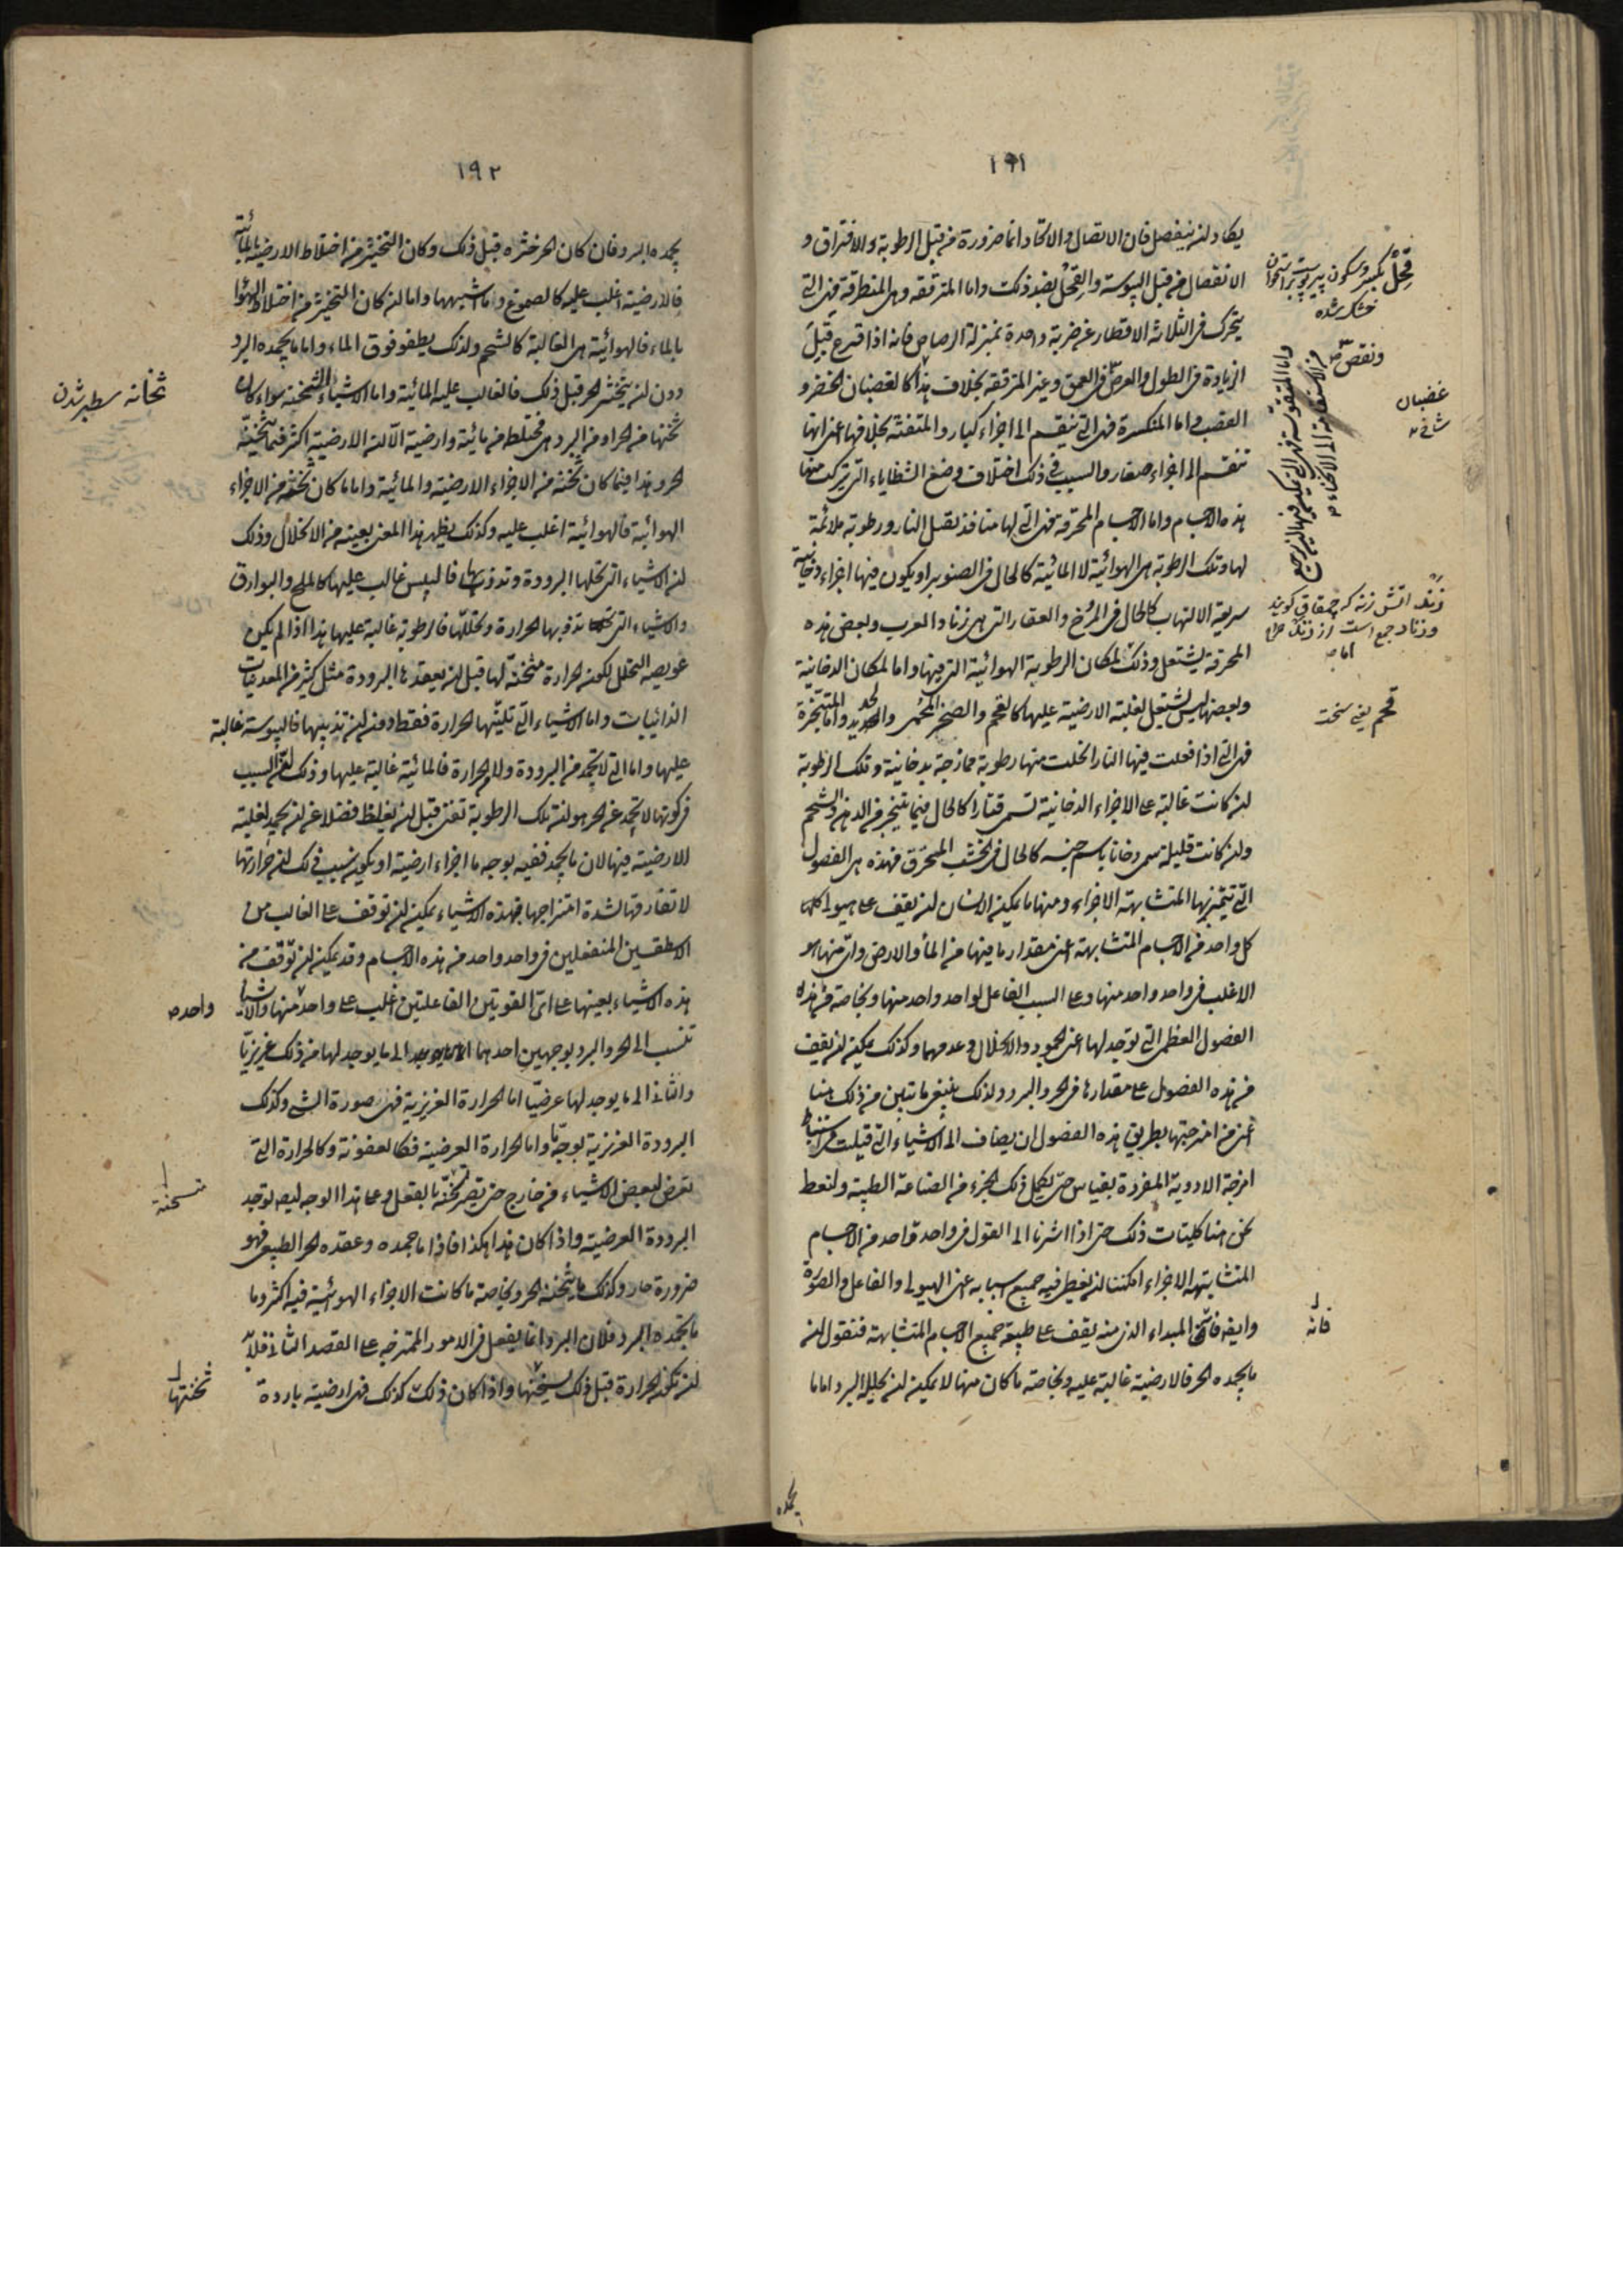 ١٩١
يكاد لن ينفصل فان الاتصال والاتحاد انما ضرورة من قبل الرطوبة والافتراق و
الانفصال من قبل اليبوسة والقحل بضد ذلك واما المترققة وهى المنطرقة فهى التى
يتحرك فى الثلاثة الاقطار عن ضربة واحدة بمنزلة الرصاص فانه اذا قرع قبل
الزيادة فى الطول والعرض فى العمق وغير المترققة بخلاف هذا كالغضبان الخضر و
القصب واما المنكسرة فهى التى تنقسم الى اجزاء كبار والمتفتتة بخلافها اعنى انها
تنقسم الى اجزاء صغار والسبب فى ذلك اختلاف وضع الشظاياء التى تركبت منها
هذه الاجسام واما الاجسام المحرقة فهى التى لها منافذ تقبل النار ورطوبة ملائمة
لها وتلك الرطوبة هى الهوائية لا المائية كالحال فى الصنوبر او يكون فيها اجزاء دخانية
سريعة الالتهاب كالحال فى المرخ والعقار التى هى زناد العرب وبعض هذه
المحرقة يشتعل وذلك لمكان الرطوبة الهوائية التى فيها واما لمكان الدخانية
وبعضها ليس يشتعل لغلبة الارضية عليها كالفحم والصخر المحمى والحديد واما المتبخرة
فهى التى اذا فعلت فيها النار انحلت منها رطوبة ممازجة بدخانية وتلك الرطوبة
لن كانت غالبة على الاجزاء الدخانية تسمى قتارا كالحال فيما يتبخر من الدهن والشحم
ولن كانت قليلة سمى دخانا باسم جنسه كالحال فى الخشب المحرق فهذه هى الفصول
التى تتميز بها المتشابهة الاجزاء ومنها ما يمكن الانسان لن يقف على هيولى كلها
كل واحد من الاجسام المتشابهة اعنى مقدار ما فيها من الماء والارض واى منها هو
الاغلب فى واحد واحد منها وعلى السبب الفاعل لواحد واحد منها وبخاصة من هذه
الفصول العظمى التى توجد لها اعنى الجمود والانحلال وعدمهما وكذلك يمكن لن يقف
من هذه الفصول على مقدارها فى الحر والبرد ولذلك ينبغى ما تبين من ذلك هنا
اعنى من امزجتها بطريق هذه الفصول ان يضاف الى الاشياء التى قيلت فى استنباط
امزجة الادوية المفردة بقياس حتى يكمل ذلك الجزء من الصناعة الطبية ولنعط
نحن هنا كليات ذلك حتى اذا اشرنا الى القول فى واحد واحد من الاجسام
المتشابهة الاجزاء امكننا لن نعطى فيه جميع اسبابه اعنى الهيولى والفاعل والصورة
وايضا فان المبداء الذى منه يقف على طبيعة جميع الاجسام المتشابهة فنقول لن
ما يجمده الحر فالارضية غالبة عليه وبخاصة ما كان منها لا يمكن لن يحلله البرد اما ما
يجمده
قحل بكسر وسكون پير پوست بر استخوان
خشك شده
ونقص
غضبان
شاخ
واما المتقوسة فهى التى يمكن فيها لن يرجع
من الاستقامة الى الانحناء
زند اتش زنه كه چقماق گويند
وزناد جمع است از زند
اما
فحم يعنى سخت
فانه
١٩٢
يجمده البرد فان كان الحر خثره قبل ذلك وكان التخثير من اختلاط الارضية بالمائية
فالارضية اغلب عليه كالصموغ وما شبهها واما لن كان التخثير من اختلاط الهواء
بالماء فالهوائية هى الغالبة كالشحم ولذلك يطفو فوق الماء واما ما يجمده البرد
دون لن يخثر الحر قبل ذلك فالغالب عليه المائية واما الاشياء الثخنة سواء كان
ثخنها من الحر او من البرد هى مختلطة من مائية وارضية الا لن الارضية اكثر فيما يثخنه
الحر وهذا فيما كان ثخنه من الاجزاء الارضية والمائية واما ما كان ثخنه من الاجزاء
الهوائية فالهوائية اغلب عليه وكذلك يظهر هذا المعنى بعينه من الانحلال وذلك
لن الاشياء التى تحلها البرودة وتذوبها فاليبس غالب عليها كالملح والبوارق
والاشياء التى تذوبها الحرارة وتحللها فالرطوبة غالبة عليها هذا اذا لم يكن
عويصة التحلل لكون الحرارة مثخنة لها قبل لن يعقدها البرودة مثل كثير من المعدنيات
الذائبات واما الاشياء التى تلينها الحرارة فقط دون لن تذيبها فاليبوسة غالبة
عليها واما التى لا تجمد من البرودة ولا الحرارة فالمائية غالبة عليها وذلك لن السبب
فى كونها لا تجمد عن الحر هو لن تلك الرطوبة تفنى قبل لن يغلظ فضلا عن لن يجمد لغلبة
الارضية فيها لان ما يجمد ففيه بوجه ما اجزاء ارضية او يكون سبب ذلك لن حرارتها
لا تفارقها لشدة امتزاجها فبهذه الاشياء يمكن لن توقف على الغالب من
الاسطقسين المنفعلين فى واحد واحد من هذه الاجسام وقد يمكن لن توقف من
هذه الاشياء بعينها على اى القوتين الفاعلتين اغلب على واحد منها والاشياء
تنسب الى الحر والبرد بوجهين احدهما الى ما يوجد لها من ذلك غريزيا
والثانى الى ما يوجد لها عرضيا اما الحرارة الغريزية فهى صورة الشئ وكذلك
البرودة الغريزية بوجه ما واما الحرارة العرضية فكالعفونة وكالحرارة التى
تعرض لبعض الاشياء من خارج حتى تصير بالفعل وعلى هذا الوجه ليس توجد
البرودة العرضية واذا كان هذا هكذا فاذا ما جمده وعقده الحر الطبيعى فهو
ضرورة حار وكذلك ما يثخنه الحر وبخاصة ما كانت الاجزاء الهوائية فيه اكثر وما
ما يجمده البرد فلان البرد انما يفعل فى الامور الممتزجة على القصد الثانى فلا بد
لن تكون الحرارة قبل ذلك واذا كان ذلك كذلك فهى ارضية باردة
ثخانة سطبر شدن
واحده
متسخنة
ثخنتها